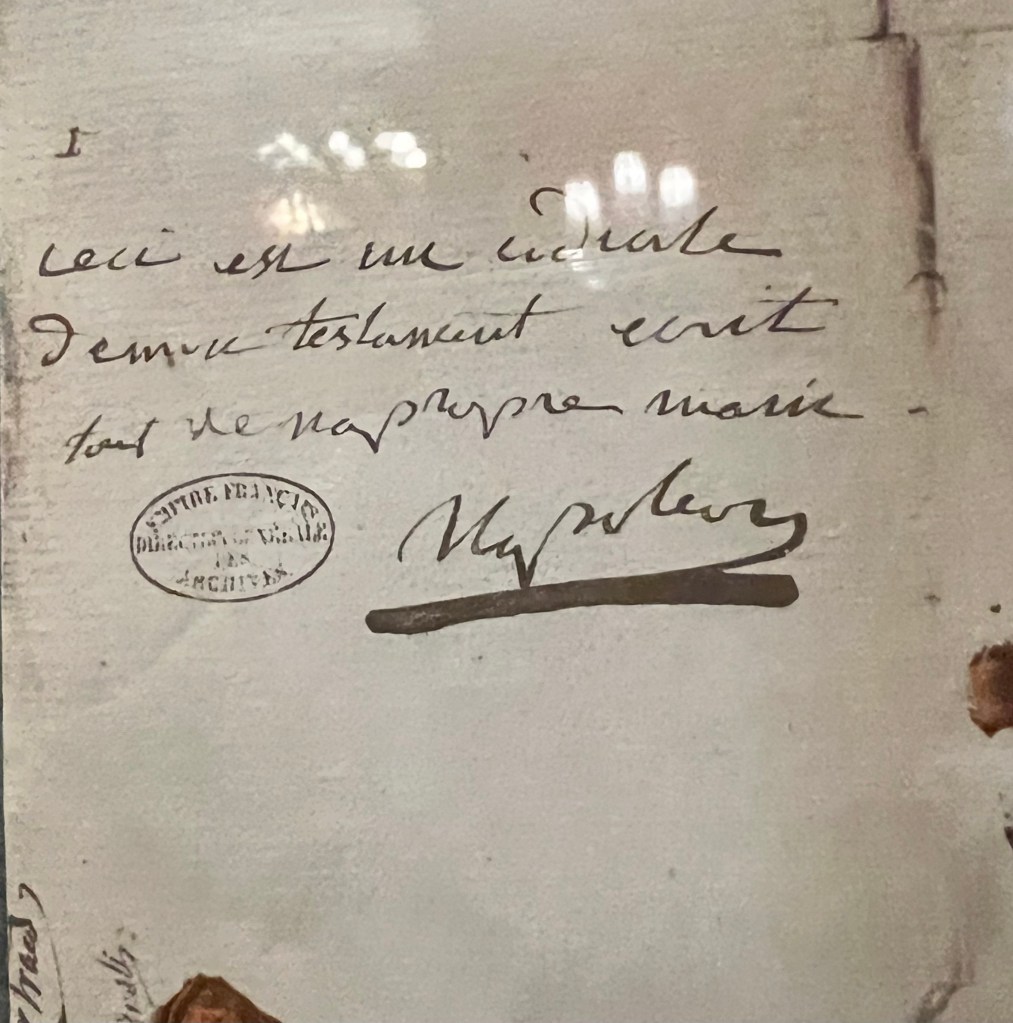 I
ceci est un codicile
de mon testament ecrit
tout de ma propre main -
EMPIRE FRANÇAIS
DIRECTION GÉNÉRALE
DES
ARCHIVES
Napoleon